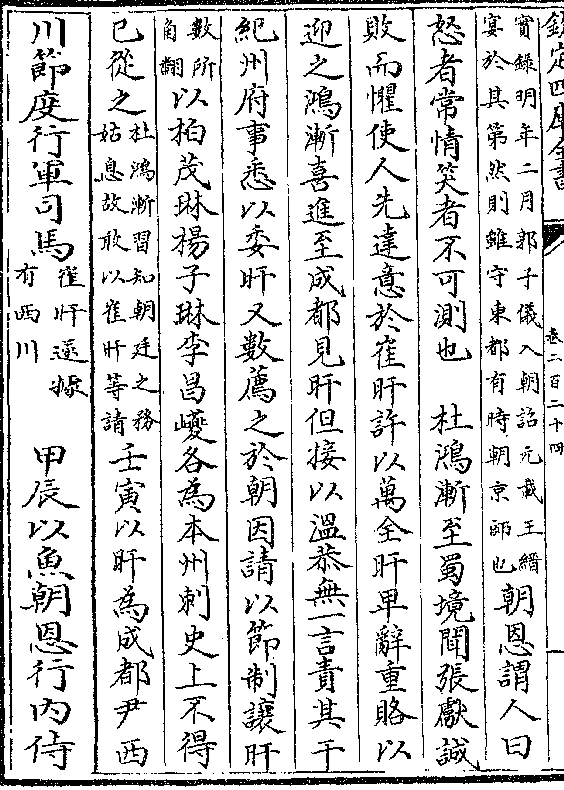 欽定四庫全書 卷二百二十四
實錄明年二月郭子儀入朝詔元載王縉
宴於其第然則雖守東都有時朝京師也
朝恩謂人曰
怒者常情笑者不可測也 杜鴻漸至蜀境聞張獻誠
敗而懼使人先達意於崔旰許以萬全旰卑辭重賂以
迎之鴻漸喜進至成都見旰但接以溫恭無一言責其干
紀州府事悉以委旰又數薦之於朝因請以節制讓旰
數所
角翻
以柏茂琳楊子琳李昌巙各為本州刺史上不得
已從之
杜鴻漸習知朝廷之務
姑息故敢以崔旰等請
壬寅以旰為成都尹西
川節度行軍司馬
崔旰遂據
有西川
甲辰以魚朝恩行内侍